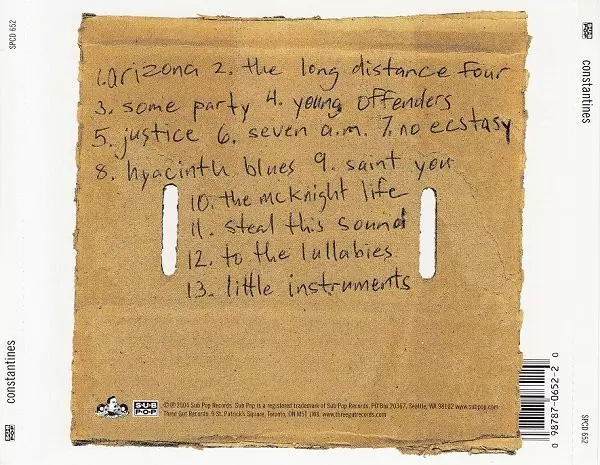 SPCD 652
SUB POP
constantines
1. arizona 2. the long distance four
3. some party 4. young offenders
5. justice 6. seven a.m. 7. no ecstasy
8. hyacinth blues 9. saint you
10. the mcknight life
11. steal this sound
12. to the lullabies
13. little instruments
SUB POP
℗© 2004 Sub Pop Records. Sub Pop is a registered trademark of Sub Pop Records, PO Box 20367, Seattle, WA 98102 www.subpop.com
Three Gut Records. 9 St. Patrick's Square, Toronto, ON M5T 1W8. www.threegutrecords.com
constantines
0 98787-0652-2 0
SPCD 652